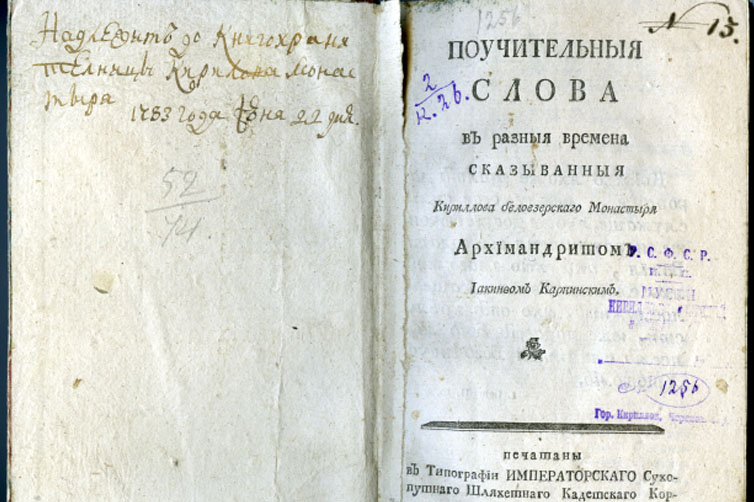 Надлежитъ до Книгохраня
телницы Кирилова Монас
тыря 1783 года Їюня 22 дня.
52
74
1256
N 15.
2
к. 26.
ПОУЧИТЕЛЬНЫЯ
СЛОВА
въ разныя времена
СКАЗЫВАННЫЯ
Кириллова белоезерскаго Монастыря
Архїмандритомъ
Іакинѳомъ Карпинскимъ.
Р. С. Ф. С. Р.
МУЗЕЙ
1256
Гор. Кириллов,
печатаны
въ Типографїи ИМПЕРАТОРСКАГО Сухо-
путнаго Шляхетнаго Кадетскаго Кор-